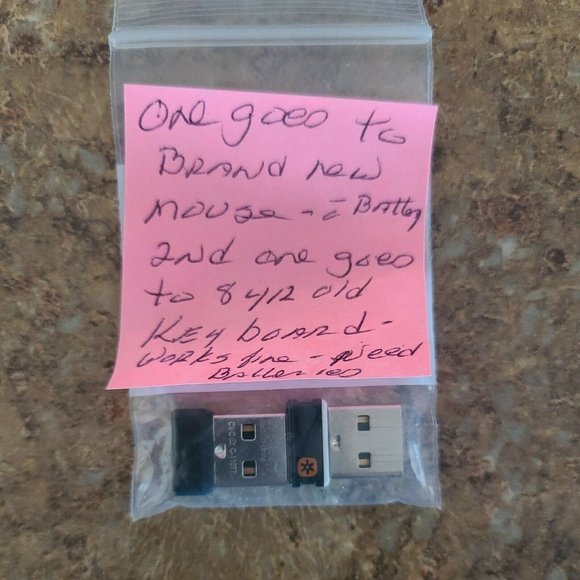 One goes to
Brand new
mouse - c̄ Battery
2nd one goes
to 8 yr old
Key board -
works fine - Need
Batteries